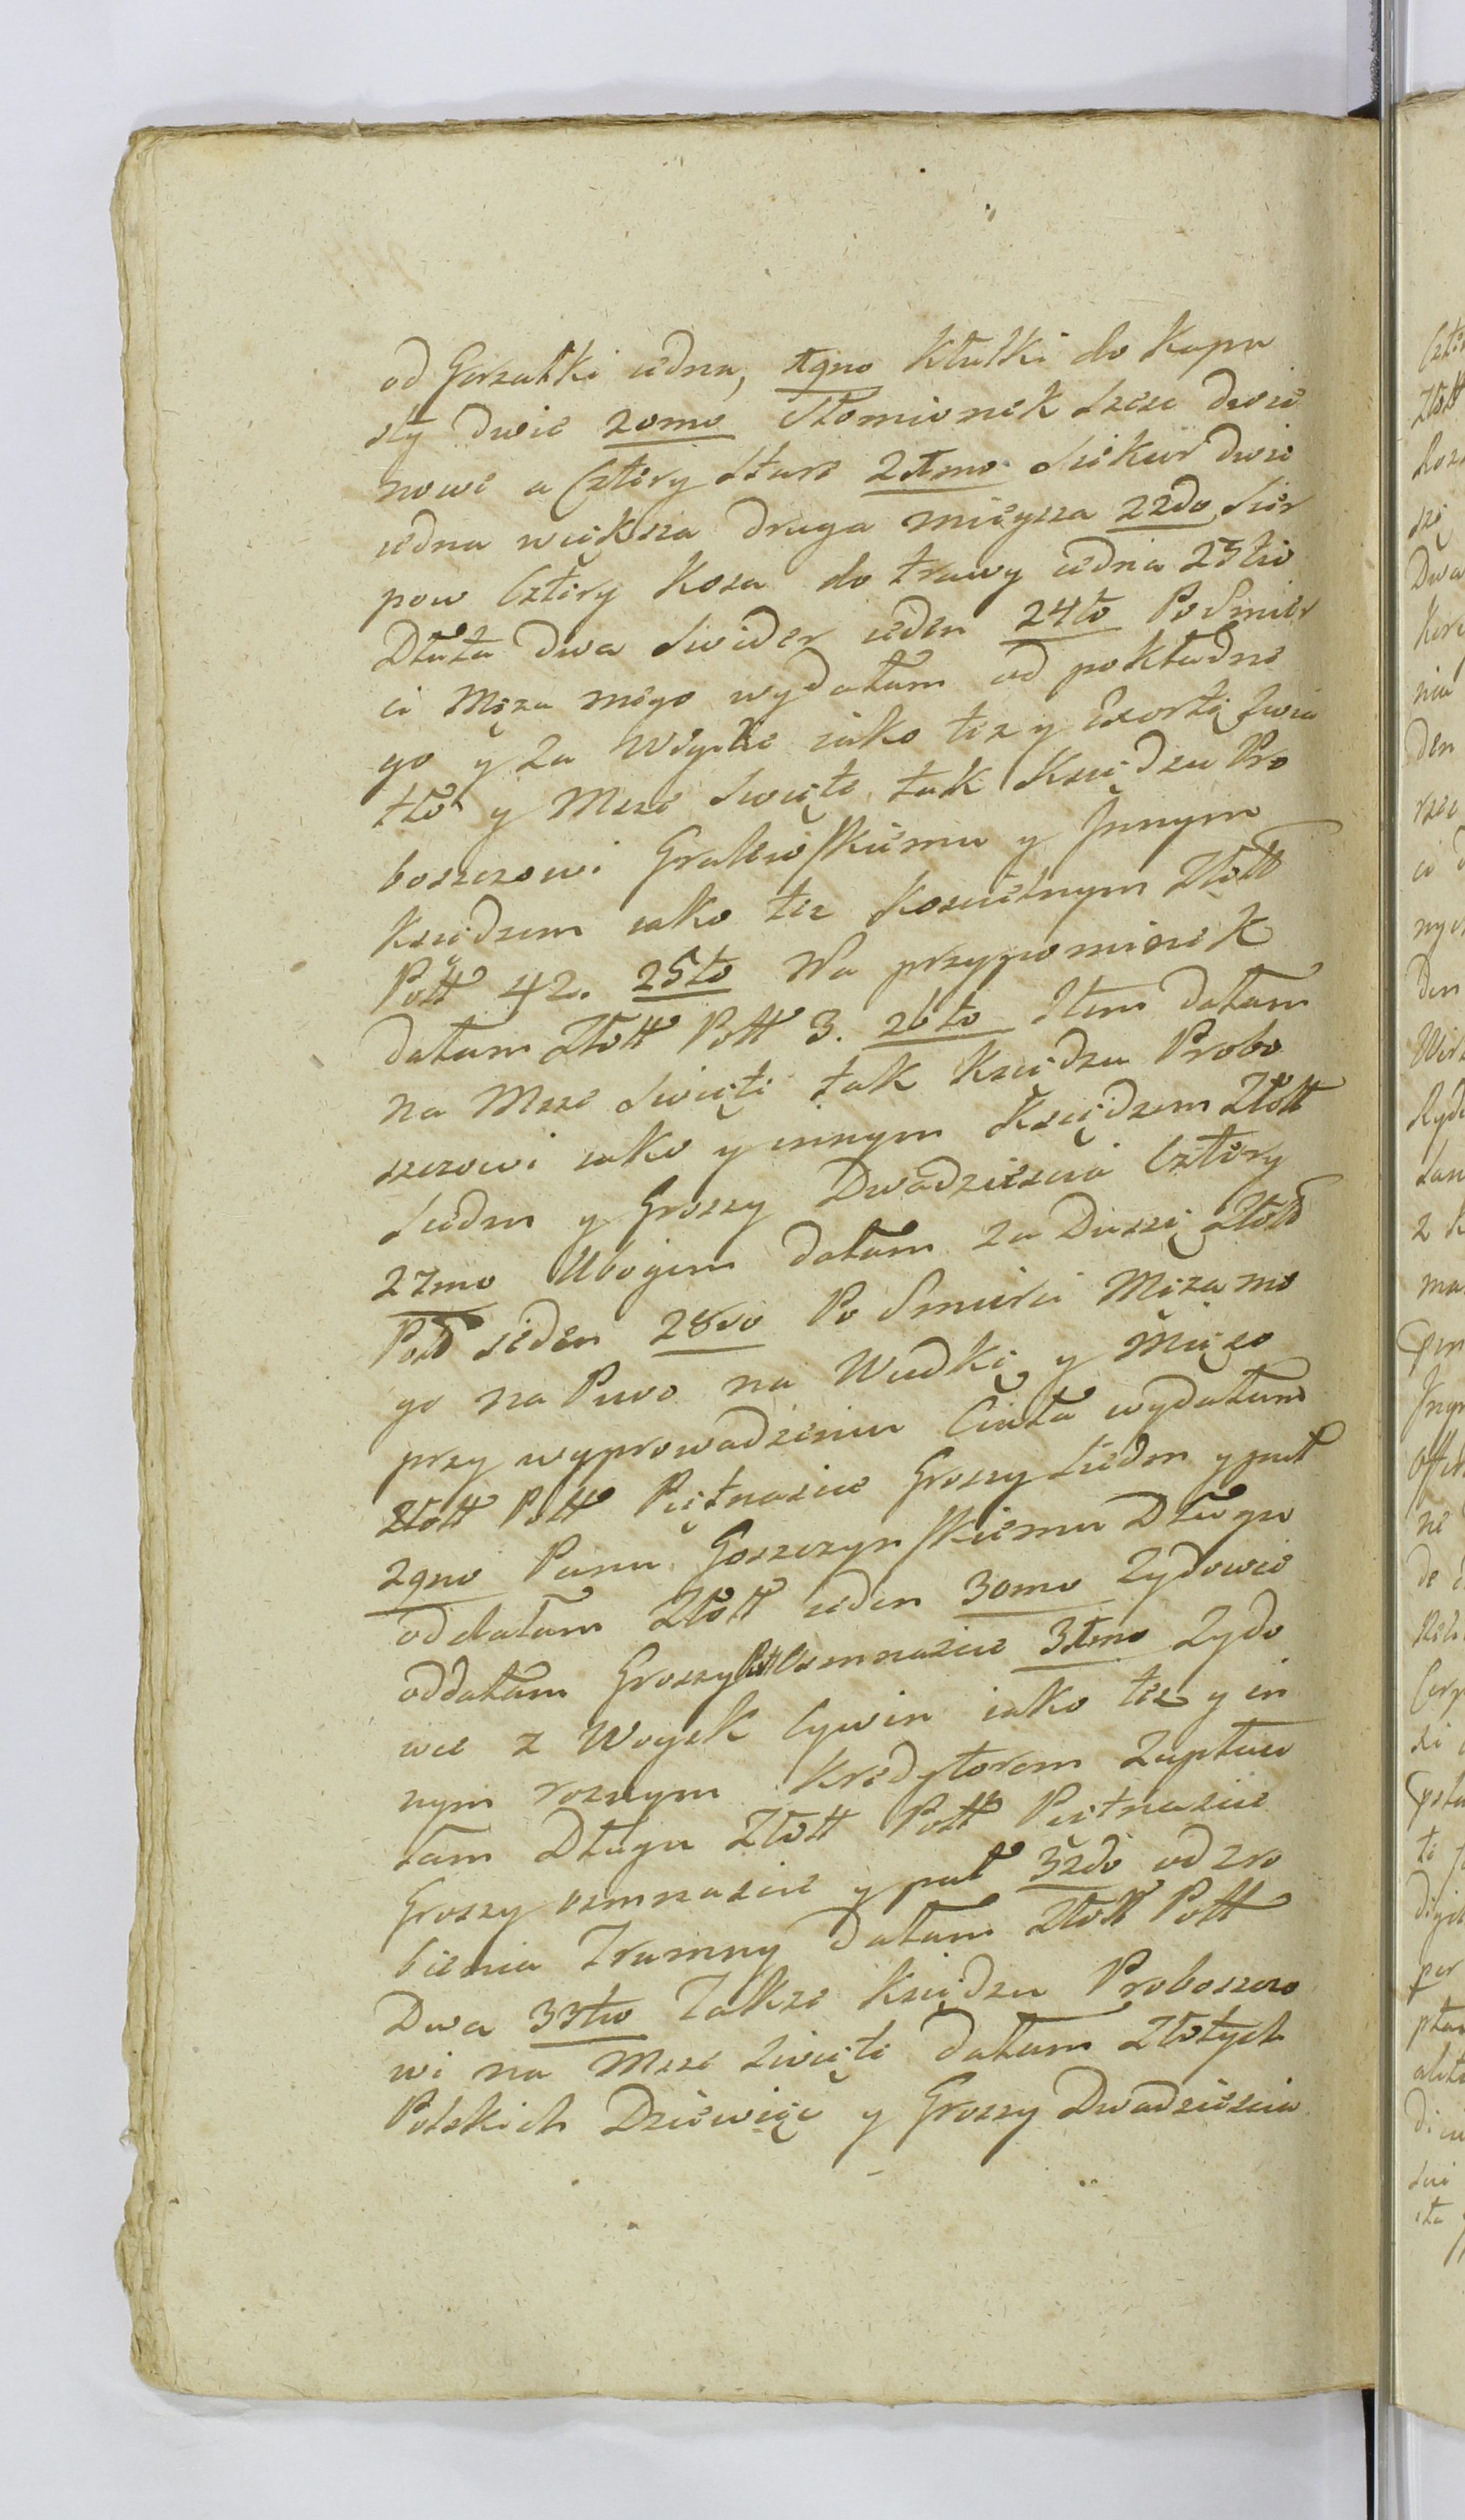 od Gorzałki iedna, 19no Kłulki do Kapu
sty dwie 20mo Słomionek szesc dwie
nowe a Cztery stare 21mo Siekier dwie
iedna większa druga mnieysza 22do Sier
pow Cztery Kosa do trawy iedna 23tio
Dłuta dwa Swider ieden 24to Po Smier
ci Męza mego wydałam od pokładne
go y za Wigilie iako tez y Exortę Swia
tło y Msze Swięte tak Xsiędzu Pro
boszczowi Gralewskiemu y Innym
Ksiedzem iako tez Koscielnym Złott
Poll 42. 25to Na przypominek
dałam Złott Poll 3. 26to Item dałam
na Msze Swięte tak Ksiedzu Probo
szczowi iako y innym Księdzem Złott
Siedm y Groszy Dwadziescia Cztery
27mo Ubogim dałam za Duszę Złott
Poll ieden 28vo Po Smierci Męza me
go na Piwo na Wudkę y Mięso
przy wyprowadzeniu Ciała wydałam
Złott Poll Piętnascie Groszy Siedm y puł
29no Panu Goszczynskiemu Długu
oddałam Złott ieden 30mo Zydowie
oddałam Groszy Poll Osmnascie 31mo Zydo
wie z Woysk Cywin iako tez y in
nym roznym Kredytorom Zapłaci
łam Długu Złott Poll Piętnascie
Groszy osmnascie y puł 32do od zro
bienia Trumny dałam Złott Poll
Dwa 33tio Takze Księdzu Proboszczo
wi na Msze Swięte dałam Złotych
Polskich Dziewięć y Groszy Dwadziescia